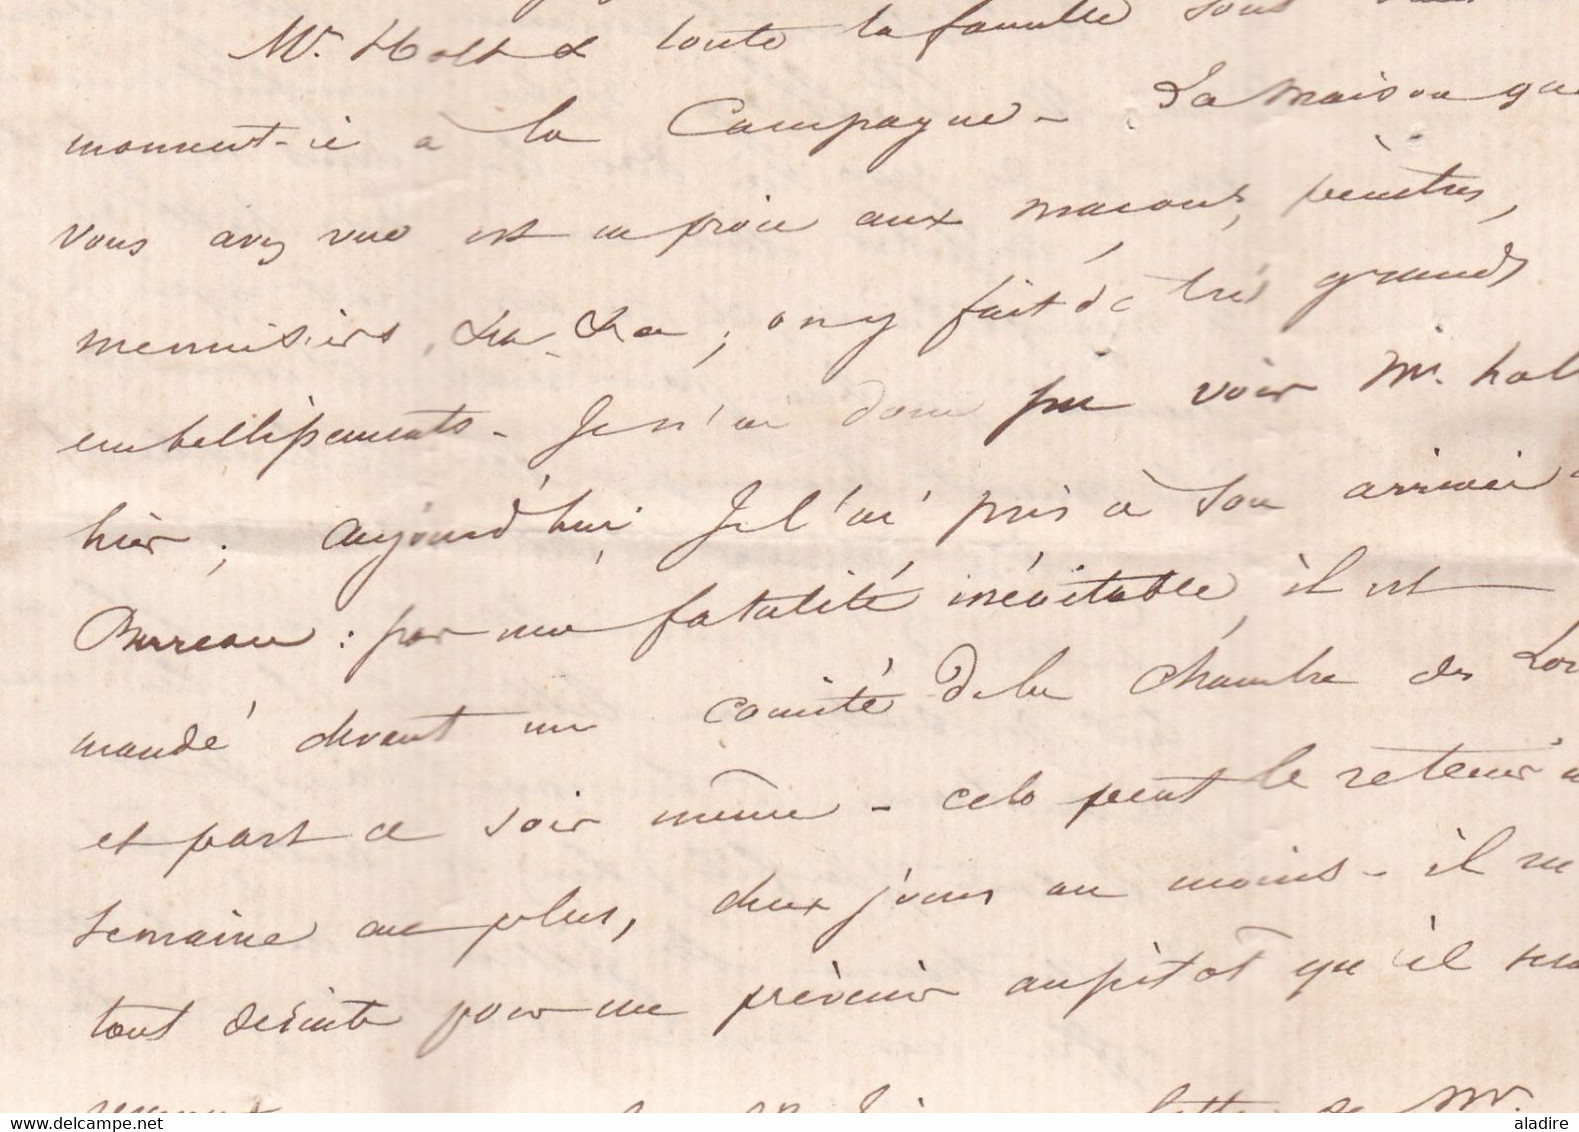 Mr. Holt & toute la famille sont
moment-ci à la Campagne - La maison que
vous avez vue est en proie aux maçons, peintres,
menuisiers, &a &a ; on y fait de très grands
embellissements - Je n'ai donc pu voir Mr. Holt
hier ; aujourd'hui Je l'ai pris à son arrivée
Bureau : par une fatalité inévitable, il est
mandé devant un comité de la Chambre des Lor
et part ce soir même - cela peut le retenir u
semaine au plus, deux jours au moins - il m
tout desuite pour me prévenir aussitôt qu'il sera
lettre de Mr.
delcampe.net
aladire